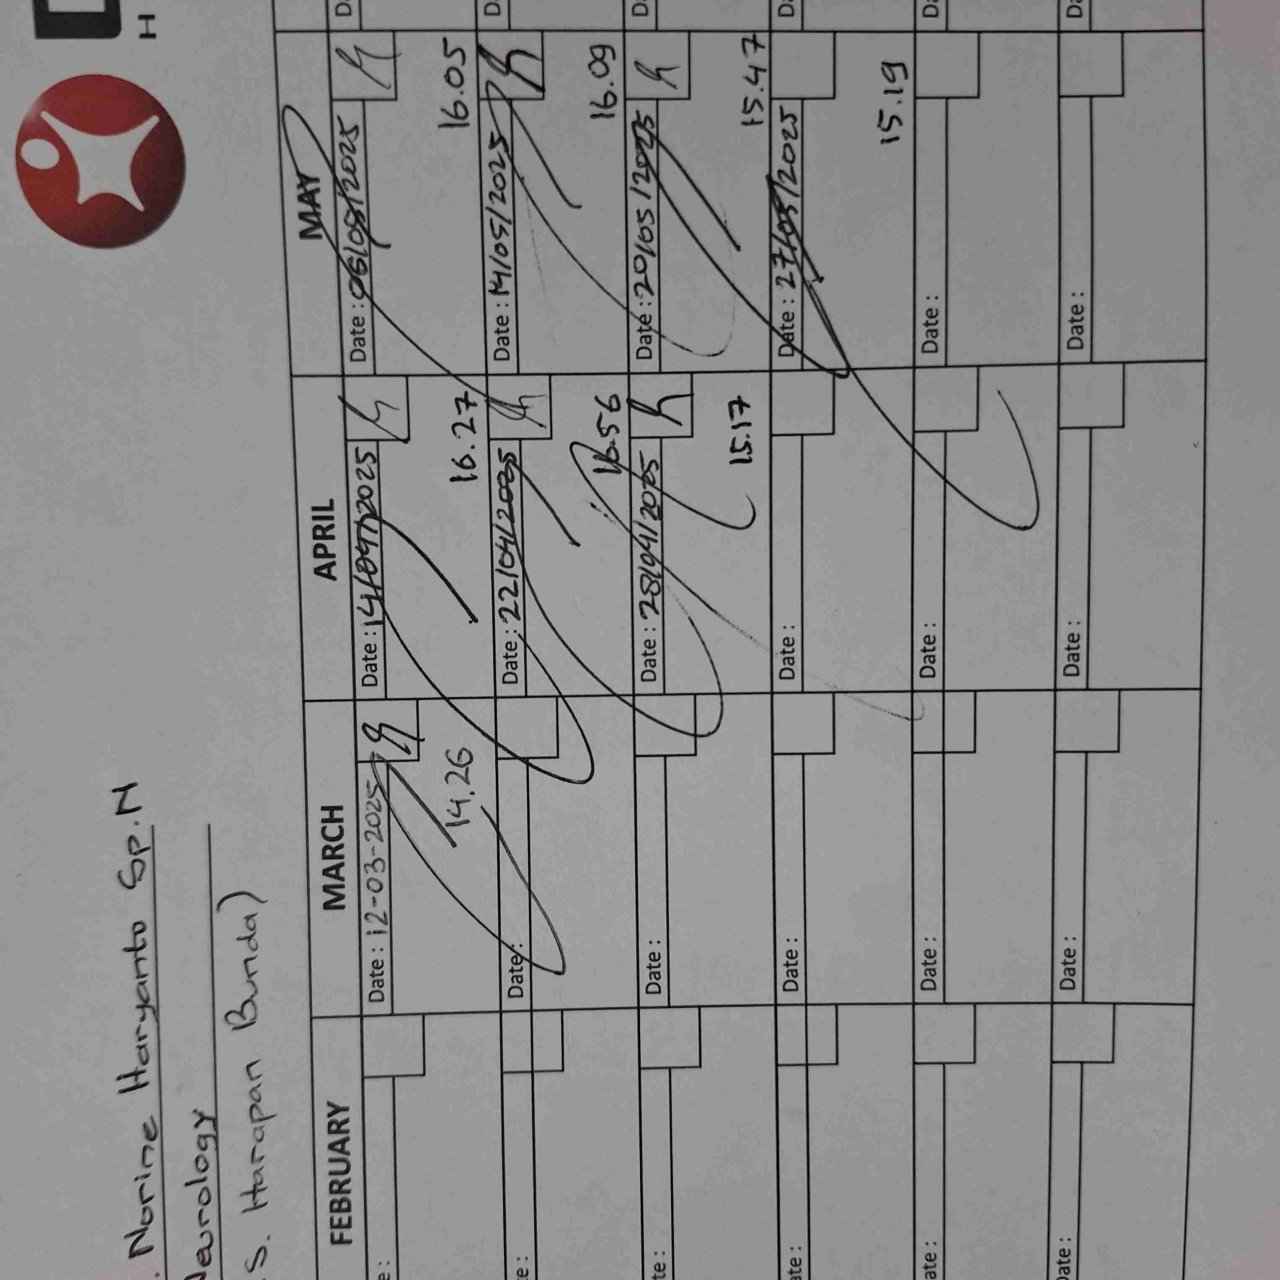 . Norine Haryanto Sp.N
Neurology
S. Harapan Bunda)
H
FEBRUARY
MARCH
APRIL
MAY
Date : 12-03-2025
14.26
Date : 14/04/2025
16.27
Date : 06/05/2025
16.05
Date :
Date : 22/04/2025
16.56
Date : 14/05/2025
16.09
Date :
Date : 28/04/2025
15.17
Date : 20/05/2025
15.47
Date :
Date :
Date : 27/05/2025
15.19
Date :
Date :
Date :
Date :
Date :
Date :